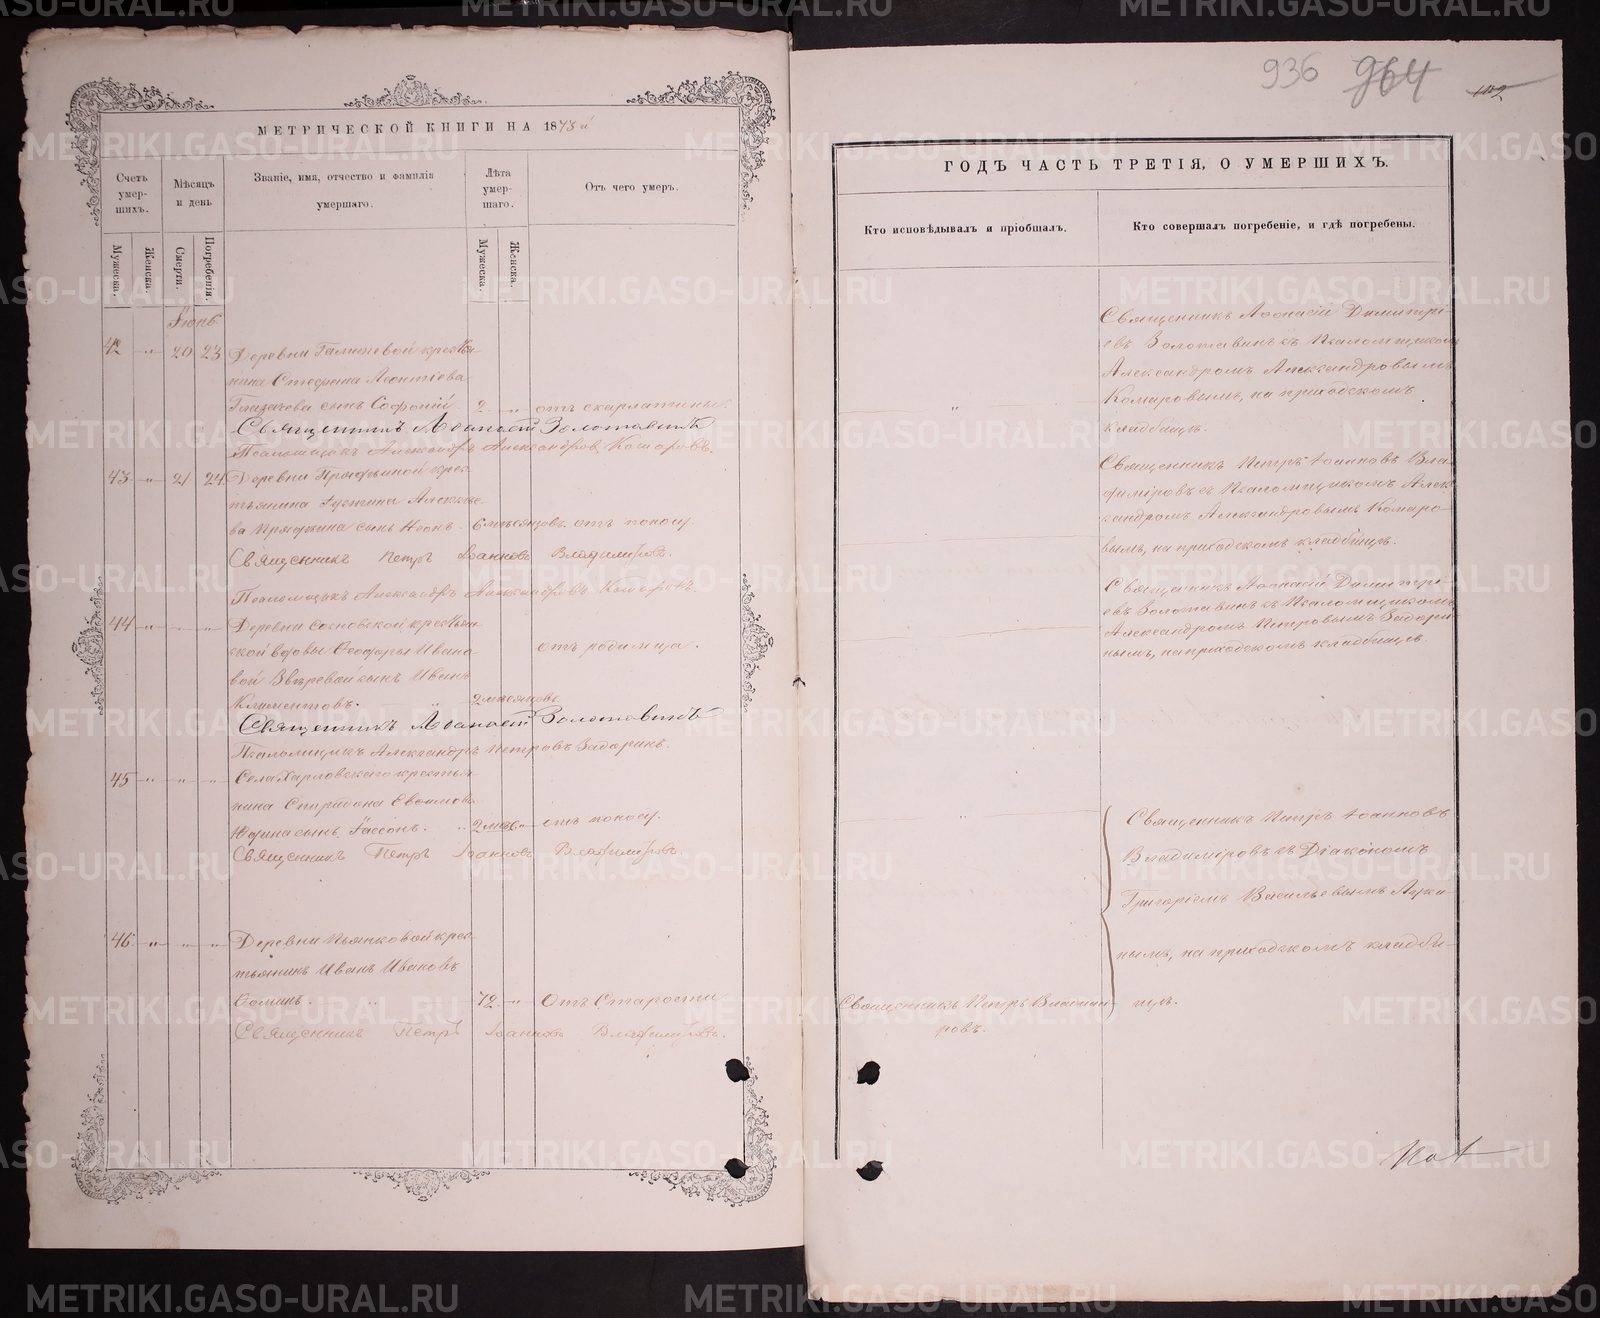 МЕТРИЧЕСКОЙ КНИГИ НА 1873й
Счетъ умер-шихъ.
Мѣсяцъ и день
Званіе, имя, отчество и фамилія умершаго.
Лѣта умер-шаго.
Отъ чего умеръ.
Мужеска.
Женска.
Смерти.
Погребенія.
Мужеска.
Женска.
Іюнь
42 " 20 23 Деревни крестья-
нина Стефана Леонтіева
Глазачева сынъ Софоній 2 " отъ скарлатины.
Священникъ Аѳанасій Золотавинъ
Псаломщикъ Александръ Александровъ Комаровъ.
43 " 21 24 Деревни Пряхиной крес-
тьянина Алексѣе-
ва Пряхина сынъ 6 мѣсяцовъ отъ поносу.
Священникъ Петръ Іоанновъ Владиміровъ.
Псаломщикъ Александръ Александровъ Комаровъ.
44 " " " Деревни Сосновской крестьян-
ской вдовы Ѳеодоры Ивано-
вой Звѣревой сынъ Иванъ отъ родимца.
Климентовъ. 2 мѣсяцовъ
Священникъ Аѳанасій Золотавинъ
Псаломщикъ Александръ Петровъ Задоринъ.
45 " " " Села Харловскаго крестья-
нина Спиридона Евѳимова
Юдина сынъ Іассонъ. 2 мѣс. " отъ поносу.
Священникъ Петръ Іоанновъ Владиміровъ.
46 " " " Деревни Пьянковой крес-
тьянинъ Иванъ Ивановъ
Ѳоминъ. 72 " Отъ Старости
Священникъ Петръ Іоанновъ Владиміровъ.
936 964
ГОДЪ ЧАСТЬ ТРЕТІЯ, О УМЕРШИХЪ.
Кто исповѣдывалъ и пріобщалъ.
Кто совершалъ погребеніе, и гдѣ погребены.
Священникъ Аѳанасій Димитрі-
евъ Золотавинъ съ Псаломщикомъ
Александромъ Александровымъ
Комаровымъ, на приходскомъ
кладбищѣ.
Священникъ Петръ Іоанновъ Вла-
диміровъ съ Псаломщикомъ Алек-
сандромъ Александровымъ Комаро-
вымъ, на приходскомъ кладбищѣ.
Священникъ Аѳанасій Димитрі-
евъ Золотавинъ съ Псаломщикомъ
Александромъ Петровымъ Задори-
нымъ, на приходскомъ кладбищѣ.
Священникъ Петръ Іоанновъ
Владиміровъ съ Діакономъ
Григоріемъ Васильевымъ Луки-
нымъ, на приходскомъ кладби-
щѣ.
Священникъ Петръ Владими-
ровъ.
METRIKI.GASO-URAL.RU